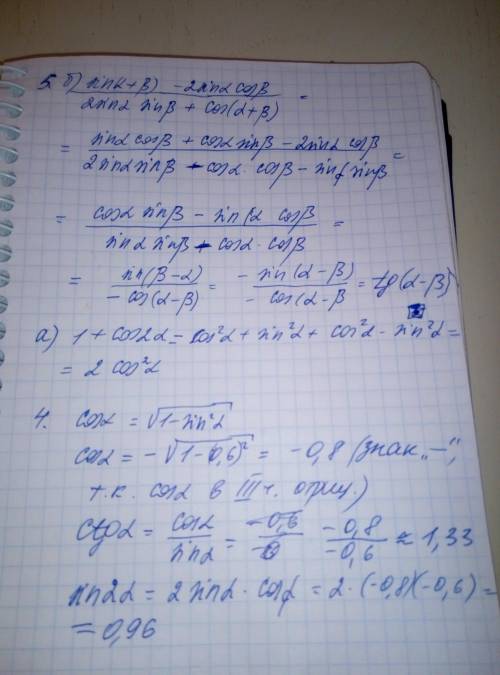 5. б) sin(α+β) - 2sinα cosβ / 2sinα sinβ + cos(α+β) =
= sinα cosβ + cosα sinβ - 2sinα cosβ / 2sinα sinβ - cosα · cosβ - sinα sinβ =
= cosα sinβ - sin(α cosβ / sinα sinβ - cosα · cosβ =
= sin(β-α) / -cos(α-β) = -sin(α-β) / -cos(α-β = tg(α-β)
а) 1 + cos2α = cos²α + sin²α + cos²α - sin²α =
= 2 cos²α
4. cosα = √1-sin²α
cosα = -√1-(0,6)² = -0,8 (знак „-“,
т.к. cosα в III ч. отриц.)
ctgα = cosα / sinα = -0,8 / -0,6 ≈ 1,33
sin2α = 2 sinα · cosα = 2 · (-0,8)(-0,6) =
= 0,96